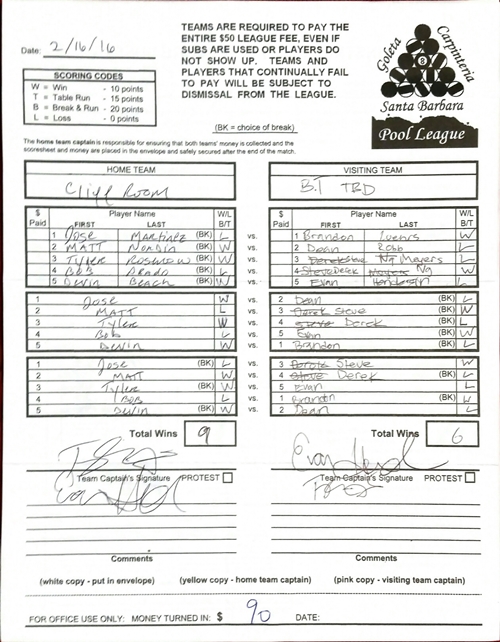 Date: 2/16/16
TEAMS ARE REQUIRED TO PAY THE
ENTIRE $50 LEAGUE FEE, EVEN IF
SUBS ARE USED OR PLAYERS DO
NOT SHOW UP. TEAMS AND
PLAYERS THAT CONTINUALLY FAIL
TO PAY WILL BE SUBJECT TO
DISMISSAL FROM THE LEAGUE.
Goleta
Carpinteria
8
Santa Barbara
Pool League
SCORING CODES
W = Win - 10 points
T = Table Run - 15 points
B = Break & Run - 20 points
L = Loss - 0 points
(BK = choice of break)
The home team captain is responsible for ensuring that both teams' money is collected and the
scoresheet and money are placed in the envelope and safely secured after the end of the match.
HOME TEAM VISITING TEAM
Cliff Room B.I TBD
$ Paid Player Name FIRST LAST W/L B/T $ Paid Player Name FIRST LAST W/L B/T
1 Jose Martinez (BK) L vs. 1 Brandon W
2 MATT (BK) W vs. 2 Dean Robb L
3 Tyler (BK) W vs. 3 Meyers L
4 BOB (BK) L vs. 4 Ng W
5 Devin Beach (BK) W vs. 5 Evan L
1 Jose W vs. 2 Dean (BK) L
2 MATT L vs. 3 Derek Steve (BK) W
3 Tyler W vs. 4 Steve Derek (BK) L
4 Bob L vs. 5 Evan (BK) W
5 Devin W vs. 1 Brandon (BK) L
1 Jose (BK) L vs. 3 Derek Steve W
2 MATT W vs. 4 Steve Derek (BK) L
3 Tyler (BK) W vs. 5 Evan L
4 BOB L vs. 1 Brandon (BK) W
5 Devin (BK) W vs. 2 Dean L
Total Wins 9 Total Wins 6
Team Captain's Signature PROTEST Team Captain's Signature PROTEST
Comments Comments
(white copy - put in envelope) (yellow copy - home team captain) (pink copy - visiting team captain)
FOR OFFICE USE ONLY: MONEY TURNED IN: $ 90 DATE: